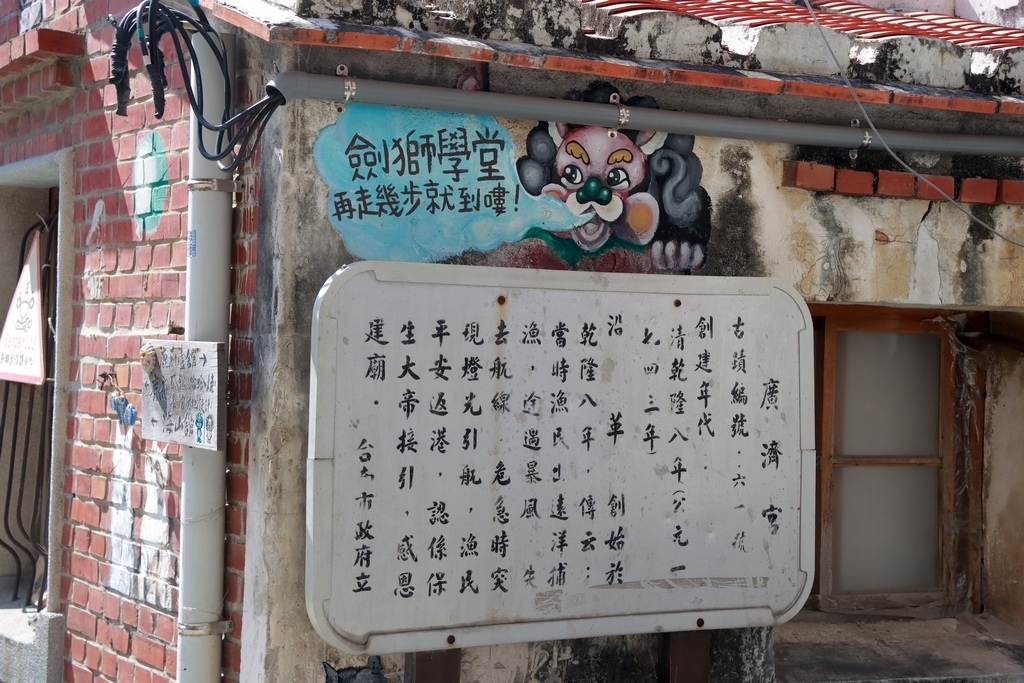 劍獅學堂
再走幾步就到嘍！
廣濟宮
古蹟編號．六一號
創建年代．
清乾隆八年（公元一
七四三年）
沿革　創始於
乾隆八年，傳云：
當時漁民出遠洋捕
漁，途遇暴風失
去航線危急時突
現燈光引航，漁民
平安返港，認係保
生大帝接引，感恩
建廟．
台南市政府立